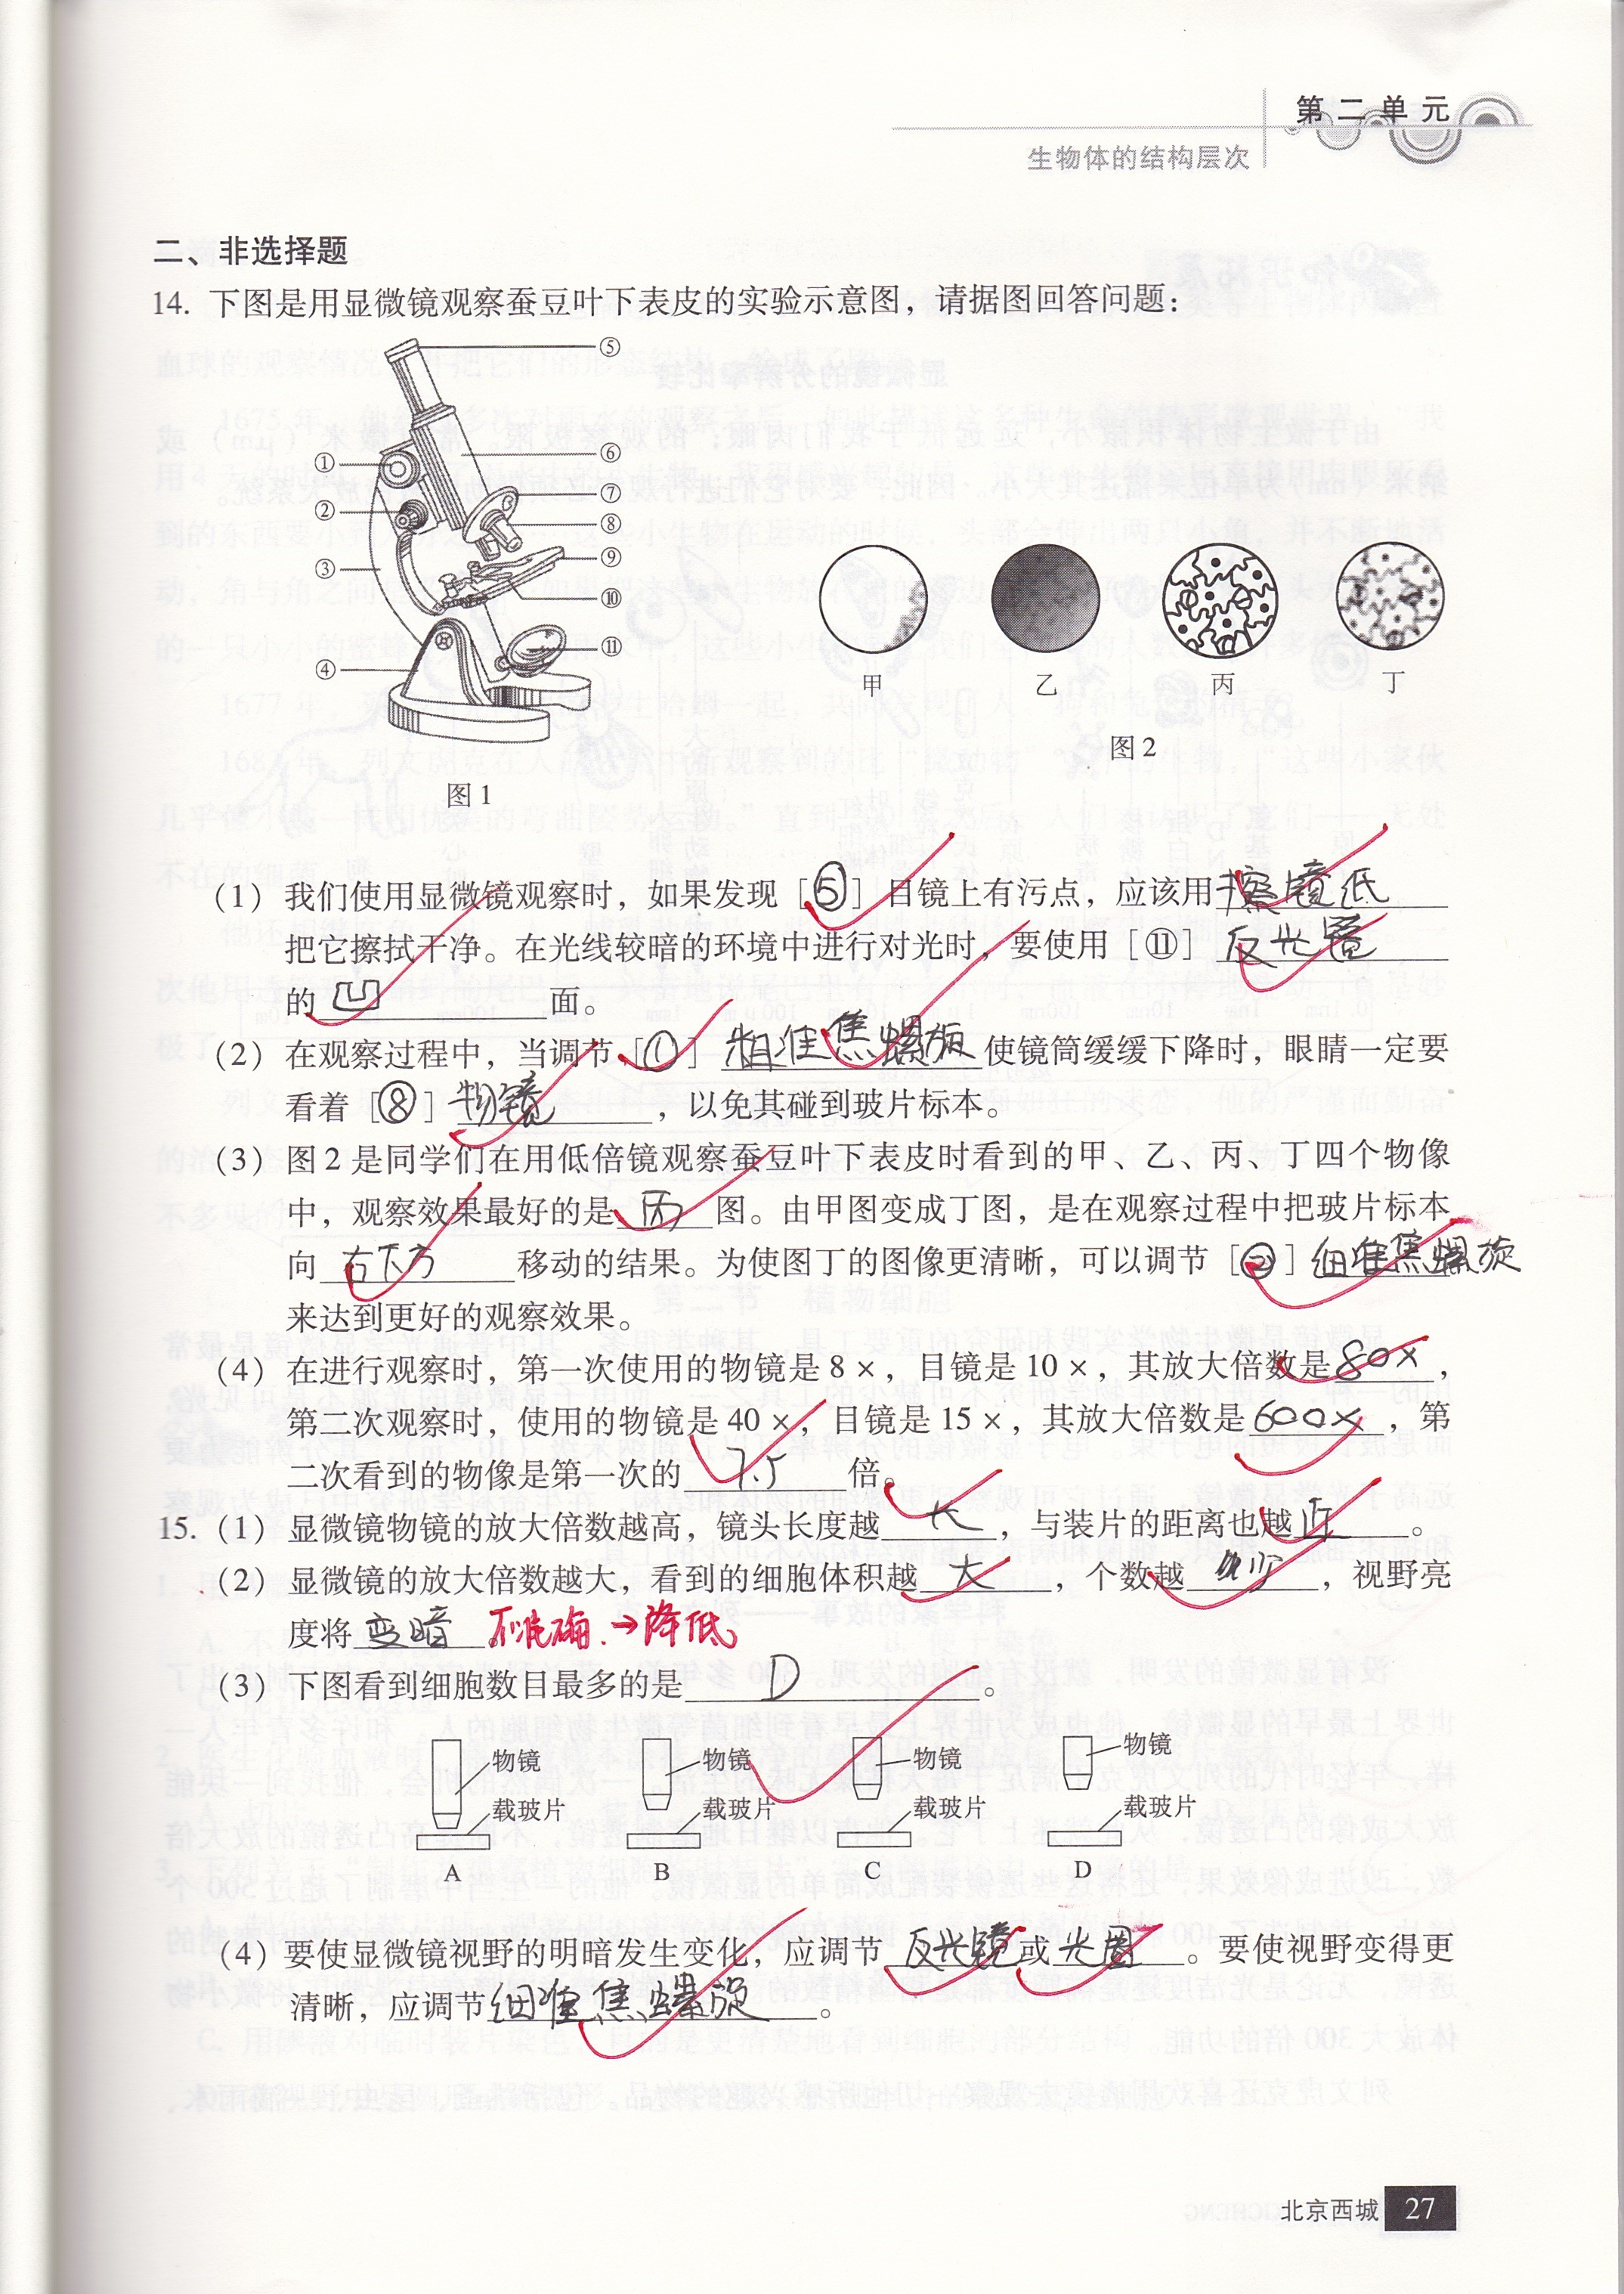 第二单元
生物体的结构层次
二、非选择题
14. 下图是用显微镜观察蚕豆叶下表皮的实验示意图，请据图回答问题：
⑤
①
⑥
②
⑦
⑧
③
⑨
⑩
④
⑪
图1
甲 乙 丙 丁
图2
（1）我们使用显微镜观察时，如果发现［⑤］目镜上有污点，应该用擦镜低
把它擦拭干净。在光线较暗的环境中进行对光时，要使用［⑪］反光镜
的凹面。
（2）在观察过程中，当调节［①］粗准焦螺旋使镜筒缓缓下降时，眼睛一定要
看着［⑧］物镜，以免其碰到玻片标本。
（3）图2是同学们在用低倍镜观察蚕豆叶下表皮时看到的甲、乙、丙、丁四个物像
中，观察效果最好的是丙图。由甲图变成丁图，是在观察过程中把玻片标本
向右下方移动的结果。为使图丁的图像更清晰，可以调节［②］细准焦螺旋
来达到更好的观察效果。
（4）在进行观察时，第一次使用的物镜是8×，目镜是10×，其放大倍数是80×，
第二次观察时，使用的物镜是40×，目镜是15×，其放大倍数是600×，第
二次看到的物像是第一次的7.5倍。
15.（1）显微镜物镜的放大倍数越高，镜头长度越长，与装片的距离也越近。
（2）显微镜的放大倍数越大，看到的细胞体积越大，个数越少，视野亮
度将变暗。不准确.→降低
（3）下图看到细胞数目最多的是D。
物镜 物镜 物镜 物镜
载玻片 载玻片 载玻片 载玻片
A B C D
（4）要使显微镜视野的明暗发生变化，应调节反光镜或光圈。要使视野变得更
清晰，应调节细准焦螺旋。
北京西城 27